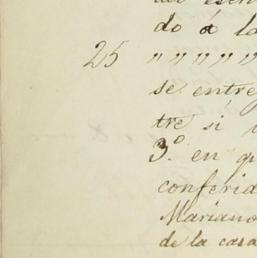 do á la
25 " " " " "
se entre
tre sí
3º en q
conferid
Mariano
de la casa